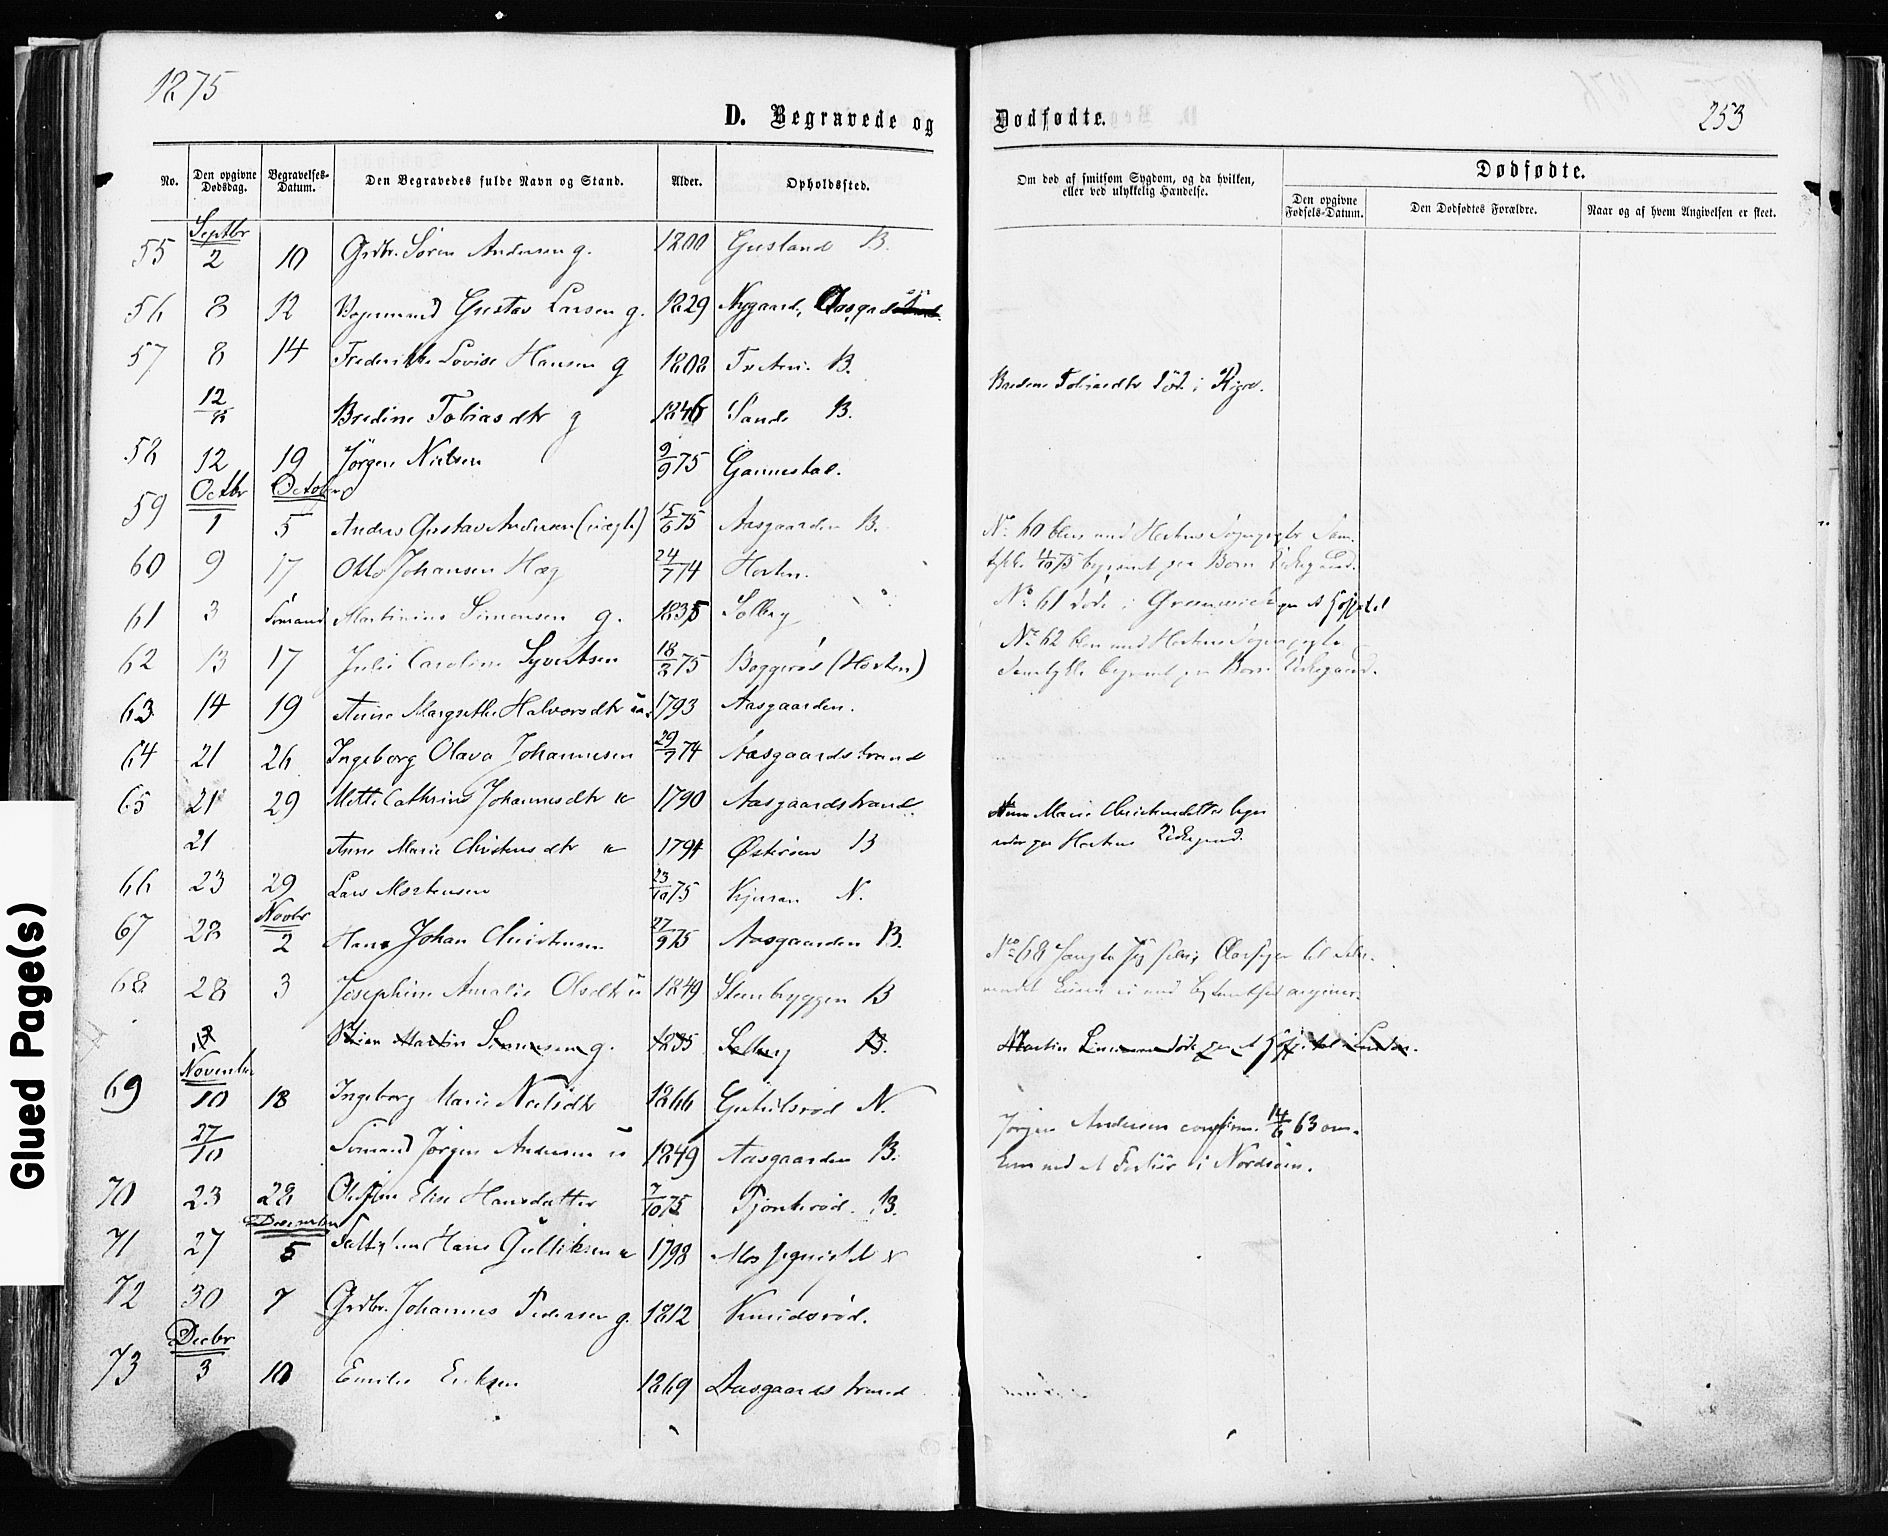 1875
D. Begravede og Dødfødte.
253
No.
Den opgivne Dødsdag.
Begravelses-Datum.
Den Begravedes fulde Navn og Stand.
Alder.
Opholdssted.
Om død af smitsom Sygdom, og da hvilken, eller ved ulykkelig Hændelse.
Dødfødte.
Den opgivne Fødsels-Datum.
Den Dødfødtes Forældre.
Naar og af hvem Angivelsen er skeet.
Septbr
55 2 10 Grdbr. Søren Andersen g. 1800 B.
56 8 12 Gustav Larsen g. 1829 Nygaard,
57 8 14 Frederikke Lovise Hansen g 1808 B.
12/8 Bredine Tobiasdtr g 1846 Sande B.
Bredine Tobiasdtr død i Riga.
58 12 19 Jörgen Nielsen 9/9 75 Gannestad.
Octbr October
59 1 5 Anders Gustav Andersen (uægte) 15/6 75 Aasgaarden B.
60 9 17 Otto Johansen Hæg 24/7 74 Horten.
No. 60 blev med Hortens Sognepr Sam-
tykke 4/10 75 begravet paa Borre Kirkegaard.
61 3 Sömand Martinius Simensen g. 1835 Solberg "
No. 61 døde i Greenwich paa et Hospital
62 13 17 Julie Caroline Syvertsen 18/2 75 (Horten)
No. 62 blev med Hortens
Samtykke begravet paa Borre Kirkegaard.
63 14 19 Anne Margrethe Halvorsdtr 1793 Aasgaarden.
64 21 26 Ingeborg Olava Johannesen 29/9 74 Aasgaardstrand
65 21 29 Mette Cathrine Johannesdtr e 1790 Aasgaardstrand
21 Anne Marie Christensdtr e 1794 Østerøen B
Anne Marie Christensdatter
paa Hortens Kirkegaard.
66 23 29 Lars Mortensen 23/10 75 N.
Novbr
67 28 2 Hans Johan Christensen 27/9 75 Aasgaarden B.
68 28 3 Josephine Amalie Olsdtr u 1849 Steenbryggen B
No 68
Martin Simensen g. 1835 Solberg B.
Martin Simensen døde paa et Hospital i London.
November
69 10 18 Ingeborg Marie Neilsdtr 1866 N.
27/10 Sömand Jørgen Andersen u 1849 Aasgaarden B.
Jørgen Andersen confirm. 14/6 63 om-
kom med et Fartöi i Nordsøen.
70 23 28 Elise Hansdatter 7/10 75 B.
December
71 27 5 Hans Gulliksen e 1798
72 30 7 Grdbr. Johannes Pedersen g. 1812 Knudsrød.
Decbr
73 3 10 Emilie Eriksen 1869 Aasgaardstrand
Glued Page(s)